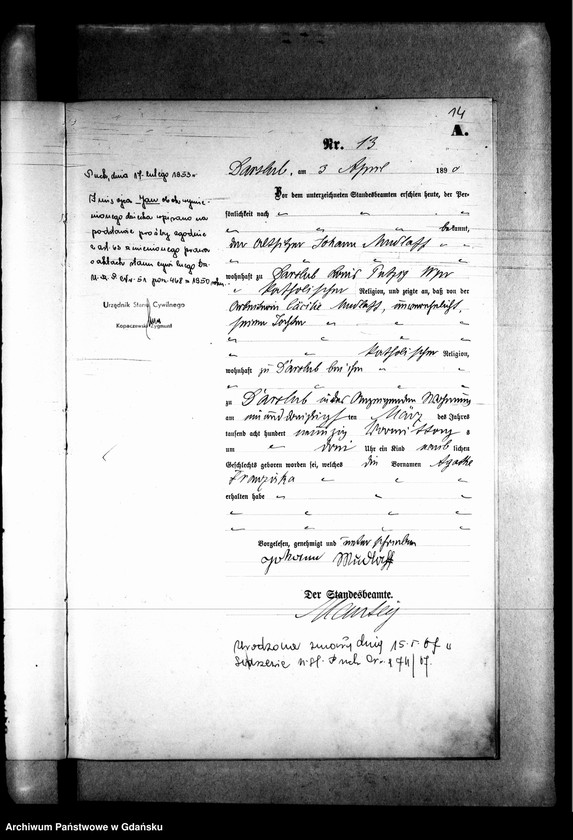 14
A.
Nr. 13
Darslub, am 3 April 1890
Puck, dnia 17. lutego 1953 r
Imię ojca Jan
dziecka wpisano na
podstawie prośby zgodnie
z art. 43 prawa
o aktach stanu cywilnego Dz.
U. R. P. Nr. 51 poz. 468 z 1950 roku.
Urzędnik Stanu Cywilnego
Kopaczewski Zygmunt
Vor dem unterzeichneten Standesbeamten erschien heute, der Per-
sönlichkeit nach
bekannt,
der Altsitzer Johann Mudlaff
wohnhaft zu Darslub Kreis Putzig Wpr
katholischer Religion, und zeigte an, daß von der
Arbeiterin Cäcilie Mudlaff, unverehelicht,
seiner Tochter
katholischer Religion,
wohnhaft zu Darslub bei ihm
zu Darslub in des Anzeigenden Wohnung
am ein und dreißigsten März des Jahres
tausend acht hundert neunzig Vormittags
um drei Uhr ein Kind weiblichen
Geschlechts geboren worden sei, welches die Vornamen Agathe
Franziska
erhalten habe
Vorgelesen, genehmigt und unterschrieben
Johann Mudlaff
Der Standesbeamte.
Urodzona zmarła dnia 15.5.67
Puck Nr.